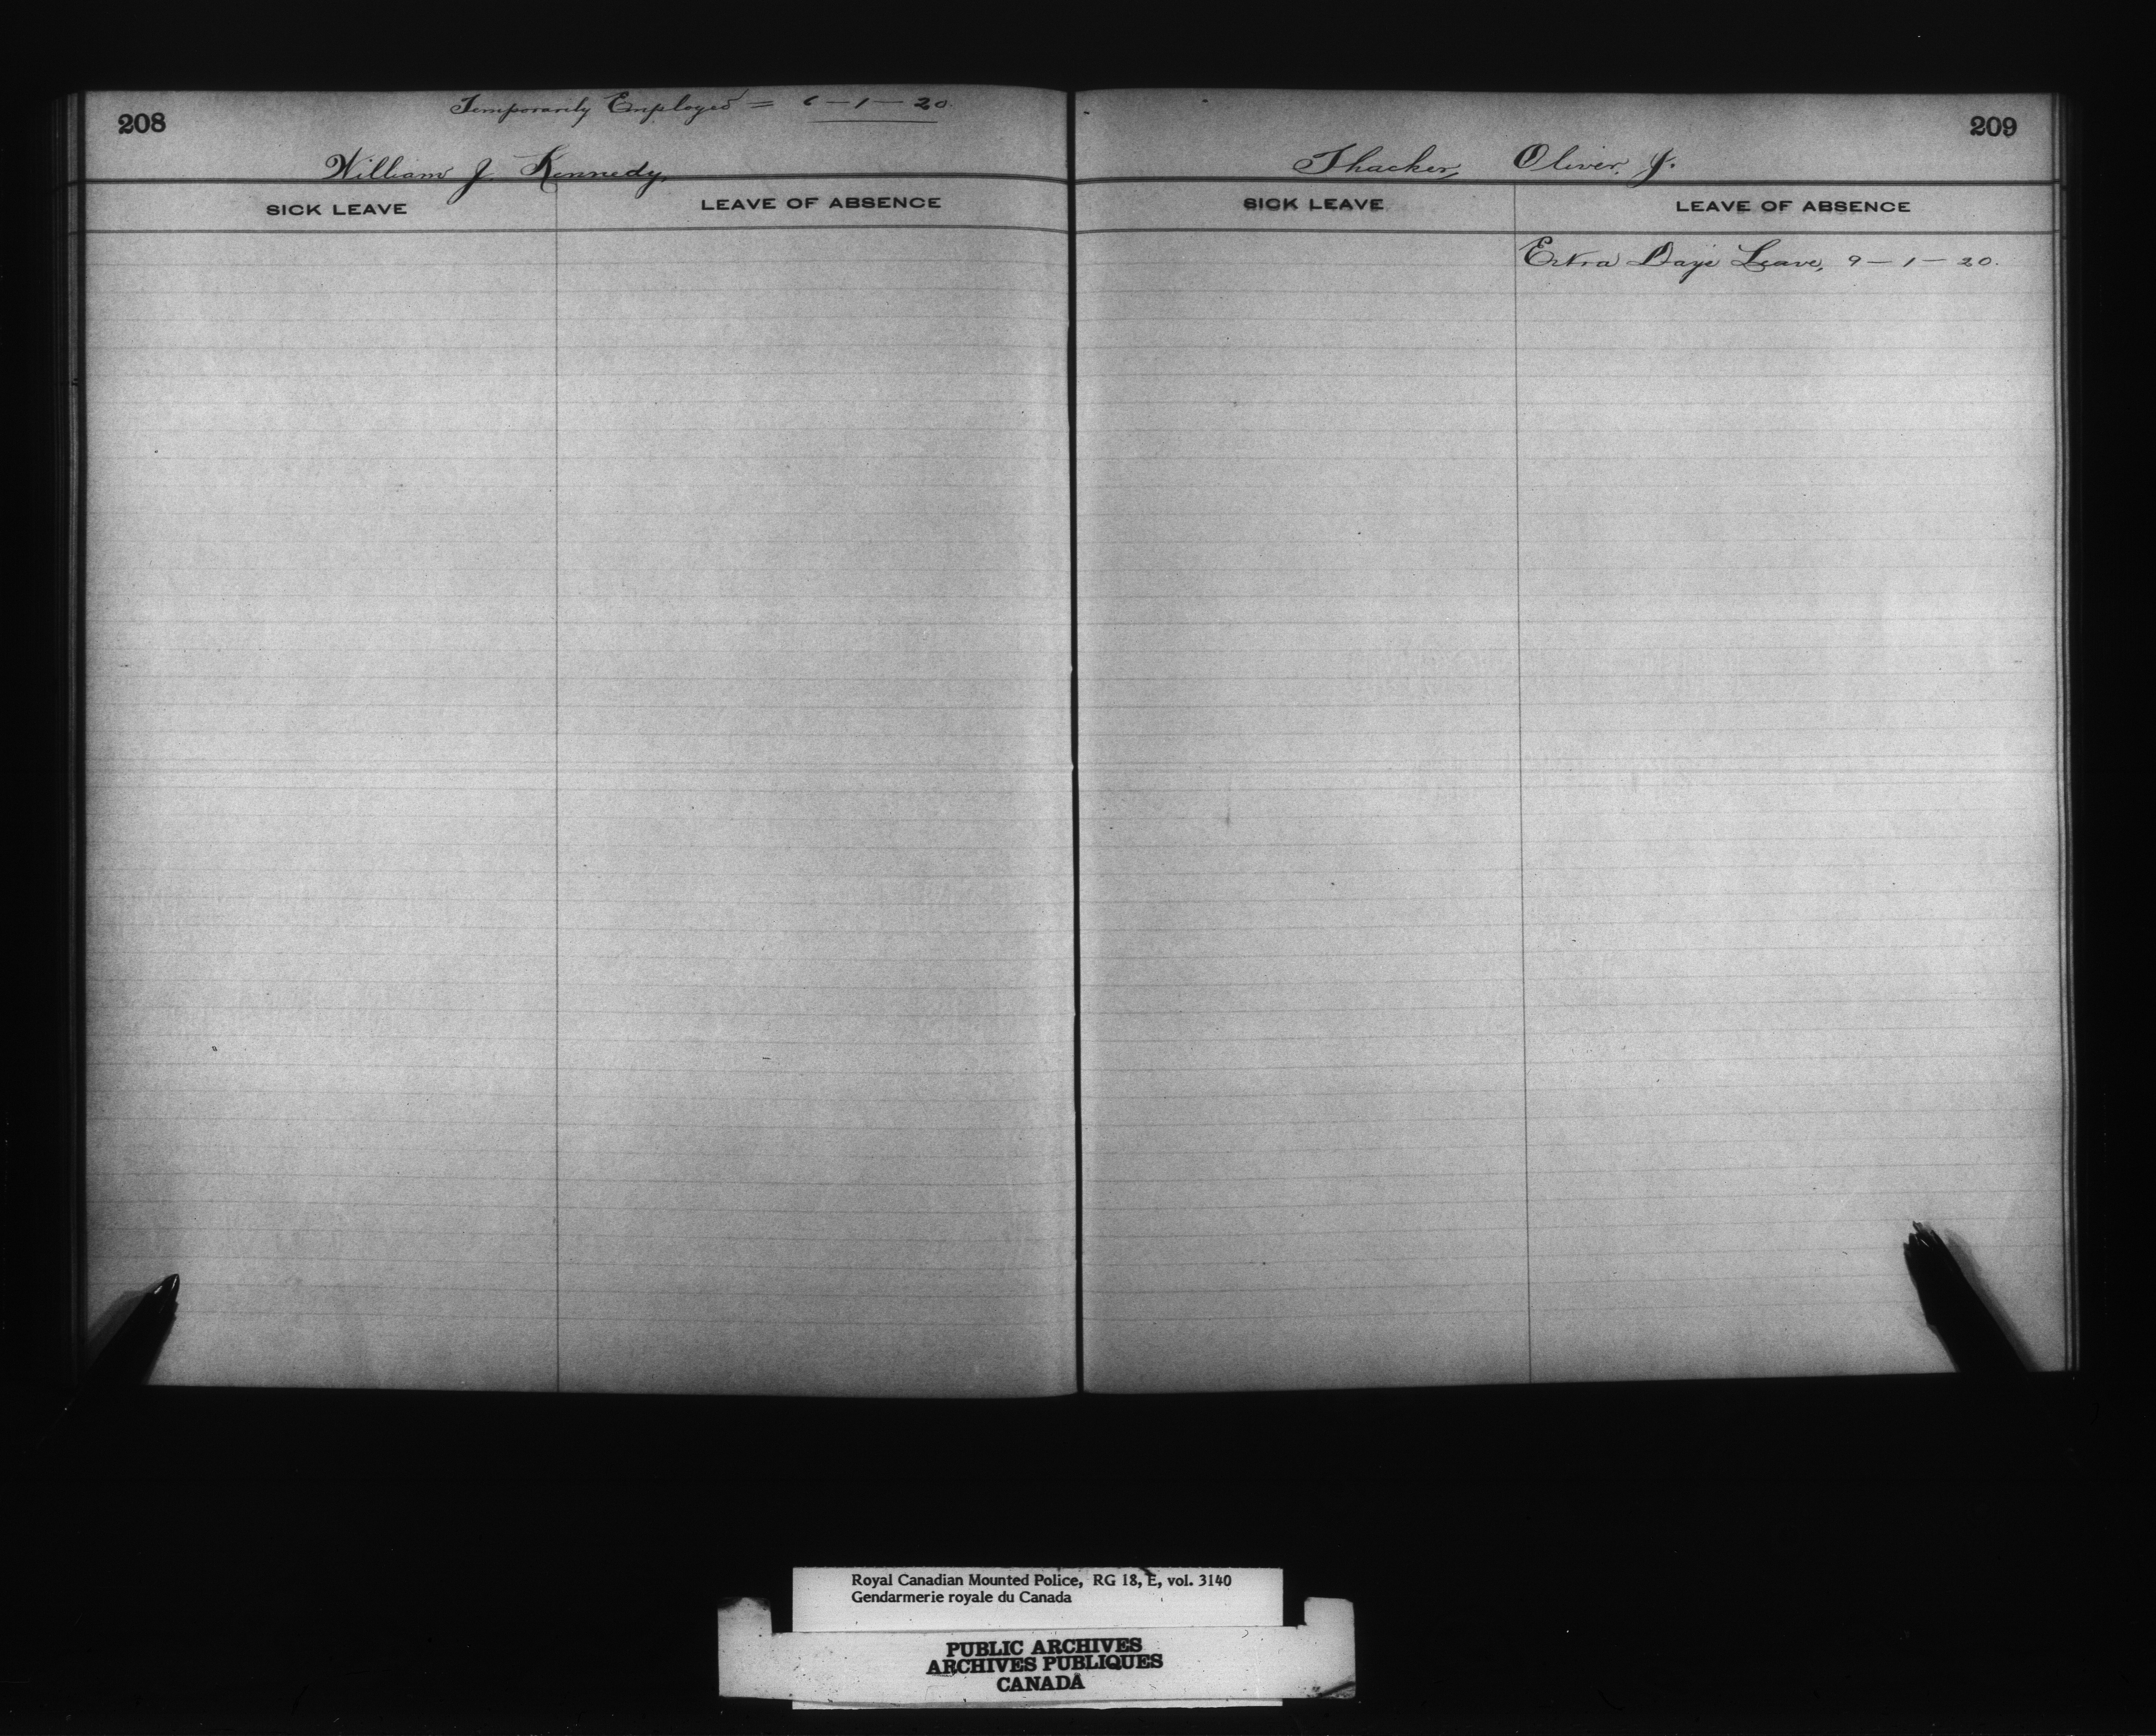 208
Temporarily Employed = 6-1-20.
William J. Kennedy,
SICK LEAVE
LEAVE OF ABSENCE
209
Thacker, Oliver, J.
SICK LEAVE
LEAVE OF ABSENCE
Extra Days Leave, 9-1-20.
Royal Canadian Mounted Police, RG 18, E, vol. 3140
Gendarmerie royale du Canada
PUBLIC ARCHIVES
ARCHIVES PUBLIQUES
CANADA